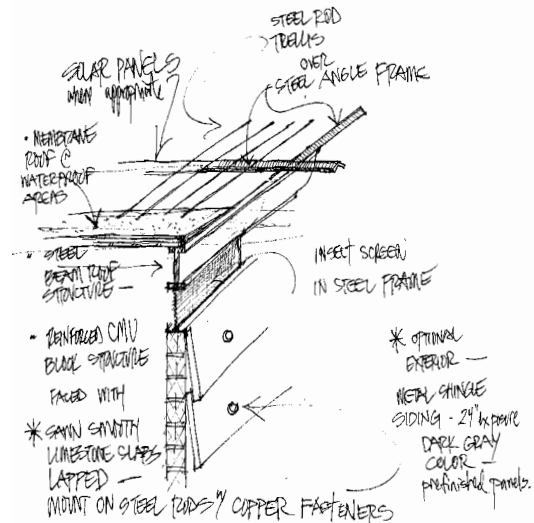 STEEL ROD
TRELLIS
OVER
STEEL ANGLE FRAME
SOLAR PANELS
where appropriate
• MEMBRANE
ROOF @
WATERPROOF
AREAS
• STEEL
BEAM ROOF
STRUCTURE —
INSECT SCREEN
IN STEEL FRAME
• REINFORCED CMU
BLOCK STRUCTURE
FACED WITH
* SAWN SMOOTH
LIMESTONE SLABS
LAPPED —
MOUNT ON STEEL RODS W/ COPPER FASTENERS
* OPTIONAL
EXTERIOR —
METAL SHINGLE
SIDING - 24" exposure
DARK GRAY
COLOR —
prefinished panels.